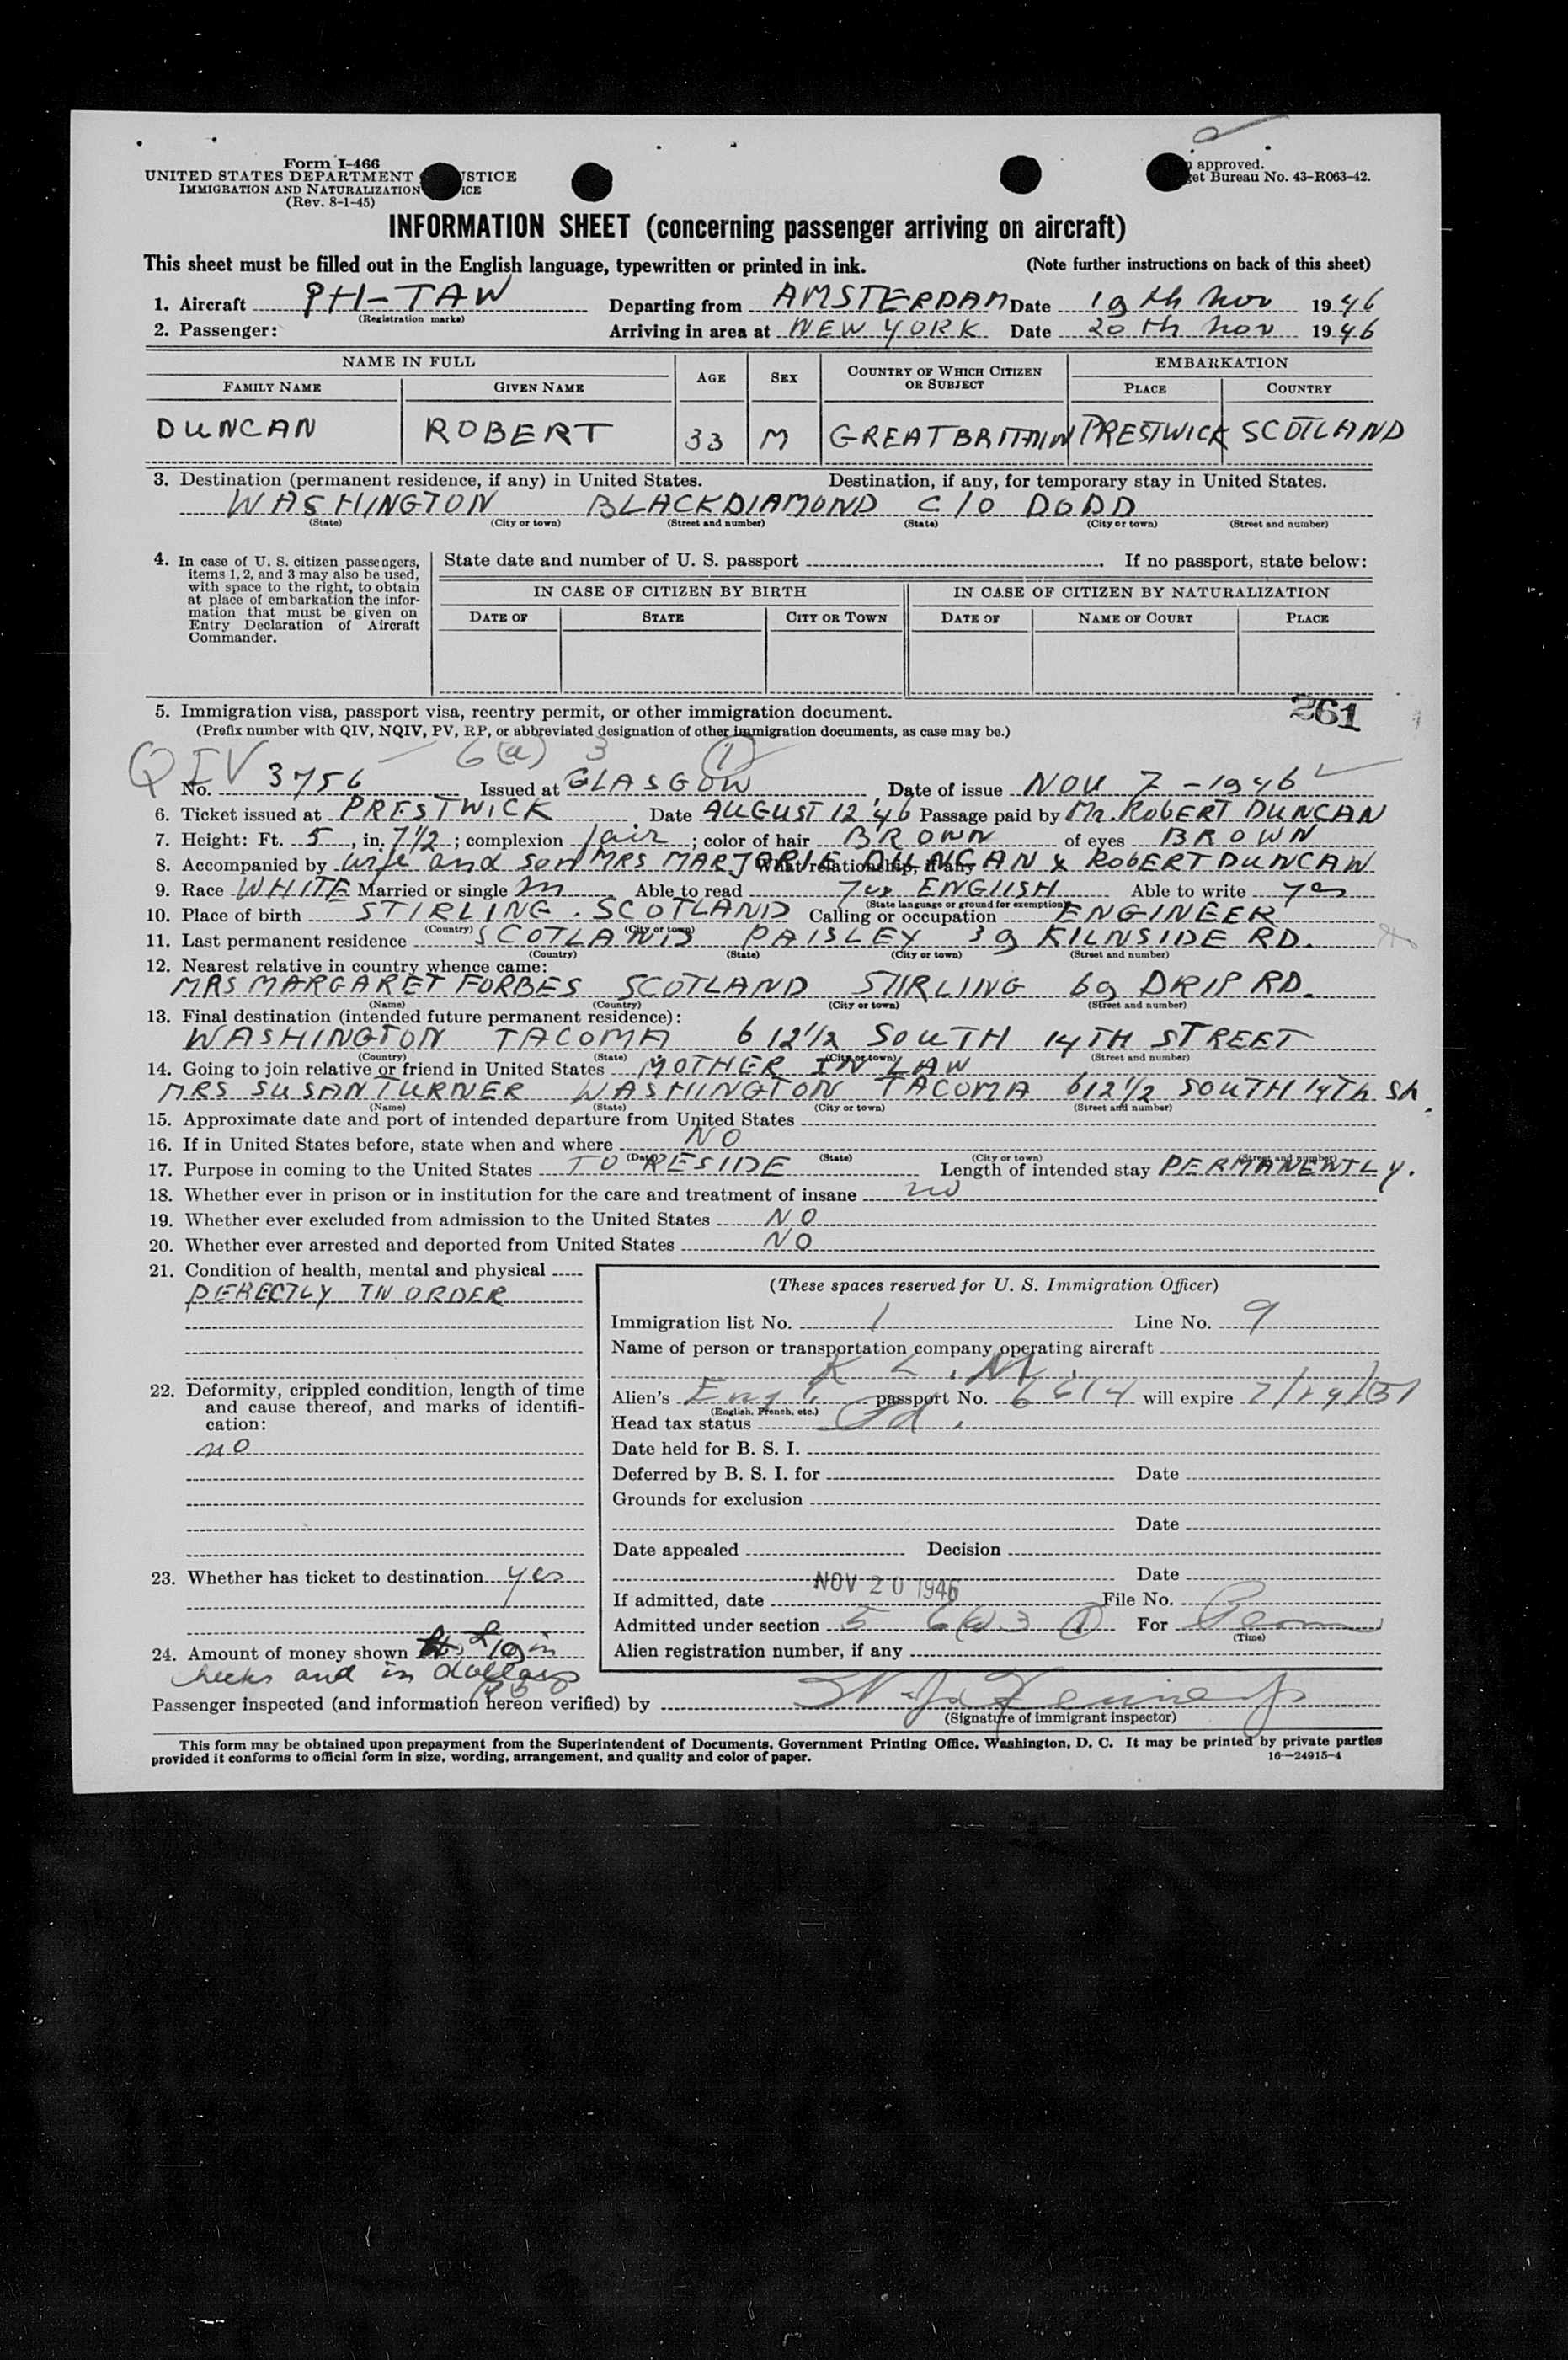 Form I-466
UNITED STATES DEPARTMENT STICE
IMMIGRATION AND NATURALIZATION ICE
(Rev. 8-1-45)
approved.
et Bureau No. 43-R063-42.
INFORMATION SHEET (concerning passenger arriving on aircraft)
This sheet must be filled out in the English language, typewritten or printed in ink. (Note further instructions on back of this sheet)
1. Aircraft PH-TAW Departing from AMSTERDAM Date 19th Nov 1946
(Registration marks)
2. Passenger: Arriving in area at NEW YORK Date 20th Nov 1946
NAME IN FULL AGE SEX COUNTRY OF WHICH CITIZEN OR SUBJECT EMBARKATION
FAMILY NAME GIVEN NAME PLACE COUNTRY
DUNCAN ROBERT 33 M GREAT BRITAIN PRESTWICK SCOTLAND
3. Destination (permanent residence, if any) in United States. Destination, if any, for temporary stay in United States.
WASHINGTON BLACKDIAMOND C/O DODD
(State) (City or town) (Street and number) (State) (City or town) (Street and number)
4. In case of U. S. citizen passengers,
items 1, 2, and 3 may also be used,
with space to the right, to obtain
at place of embarkation the infor-
mation that must be given on
Entry Declaration of Aircraft
Commander.
State date and number of U. S. passport. If no passport, state below:
IN CASE OF CITIZEN BY BIRTH IN CASE OF CITIZEN BY NATURALIZATION
DATE OF STATE CITY OR TOWN DATE OF NAME OF COURT PLACE
261
5. Immigration visa, passport visa, reentry permit, or other immigration document.
(Prefix number with QIV, NQIV, PV, RP, or abbreviated designation of other immigration documents, as case may be.)
6(a) 3 (1)
QIV No. 3756 Issued at GLASGOW, Date of issue NOV 7-1946
6. Ticket issued at PRESTWICK. Date AUGUST 12.46 Passage paid by Mr. ROBERT DUNCAN
7. Height: Ft. 5, in. 7 1/2; complexion fair; color of hair BROWN of eyes BROWN
8. Accompanied by wife and son MRS MARJORIE DUNCAN & ROBERT DUNCAN What relationship, if any
9. Race WHITE Married or single M Able to read yes ENGLISH Able to write yes
(State language or ground for exemption)
10. Place of birth STIRLING. SCOTLAND Calling or occupation ENGINEER
(Country) (City or town)
11. Last permanent residence SCOTLAND PAISLEY 39 KILNSIDE RD.
(Country) (State) (City or town) (Street and number)
12. Nearest relative in country whence came:
MRS MARGARET FORBES SCOTLAND STIRLING 69 DRIP RD.
(Name) (Country) (City or town) (Street and number)
13. Final destination (intended future permanent residence):
WASHINGTON TACOMA 612 1/2 SOUTH 14TH STREET
(Country) (State) (City or town) (Street and number)
14. Going to join relative or friend in United States MOTHER IN LAW
MRS SUSAN TURNER WASHINGTON TACOMA 612 1/2 SOUTH 14Th St.
(Name) (State) (City or town) (Street and number)
15. Approximate date and port of intended departure from United States
16. If in United States before, state when and where NO
(Date) (State) (City or town) (Street and number)
17. Purpose in coming to the United States TO RESIDE Length of intended stay PERMANENTLY.
18. Whether ever in prison or in institution for the care and treatment of insane no
19. Whether ever excluded from admission to the United States NO
20. Whether ever arrested and deported from United States NO
21. Condition of health, mental and physical
PERECTLY IN ORDER
22. Deformity, crippled condition, length of time
and cause thereof, and marks of identifi-
cation:
no
23. Whether has ticket to destination yes
24. Amount of money shown £10 in
checks and in dollars
(These spaces reserved for U. S. Immigration Officer)
Immigration list No. 1 Line No. 9
Name of person or transportation company operating aircraft
K L. M.
Alien's Engl. passport No. 6614 will expire 7/29/51
(English, French, etc.)
Head tax status Pd.
Date held for B. S. I.
Deferred by B. S. I. for Date
Grounds for exclusion
Date
Date appealed Decision
Date
If admitted, date NOV 20 1946 File No.
Admitted under section 5 6(a)3 (1) For Perm
(Time)
Alien registration number, if any
Passenger inspected (and information hereon verified) by
(Signature of immigrant inspector)
This form may be obtained upon prepayment from the Superintendent of Documents, Government Printing Office, Washington, D. C. It may be printed by private parties
provided it conforms to official form in size, wording, arrangement, and quality and color of paper. 16—24915-4